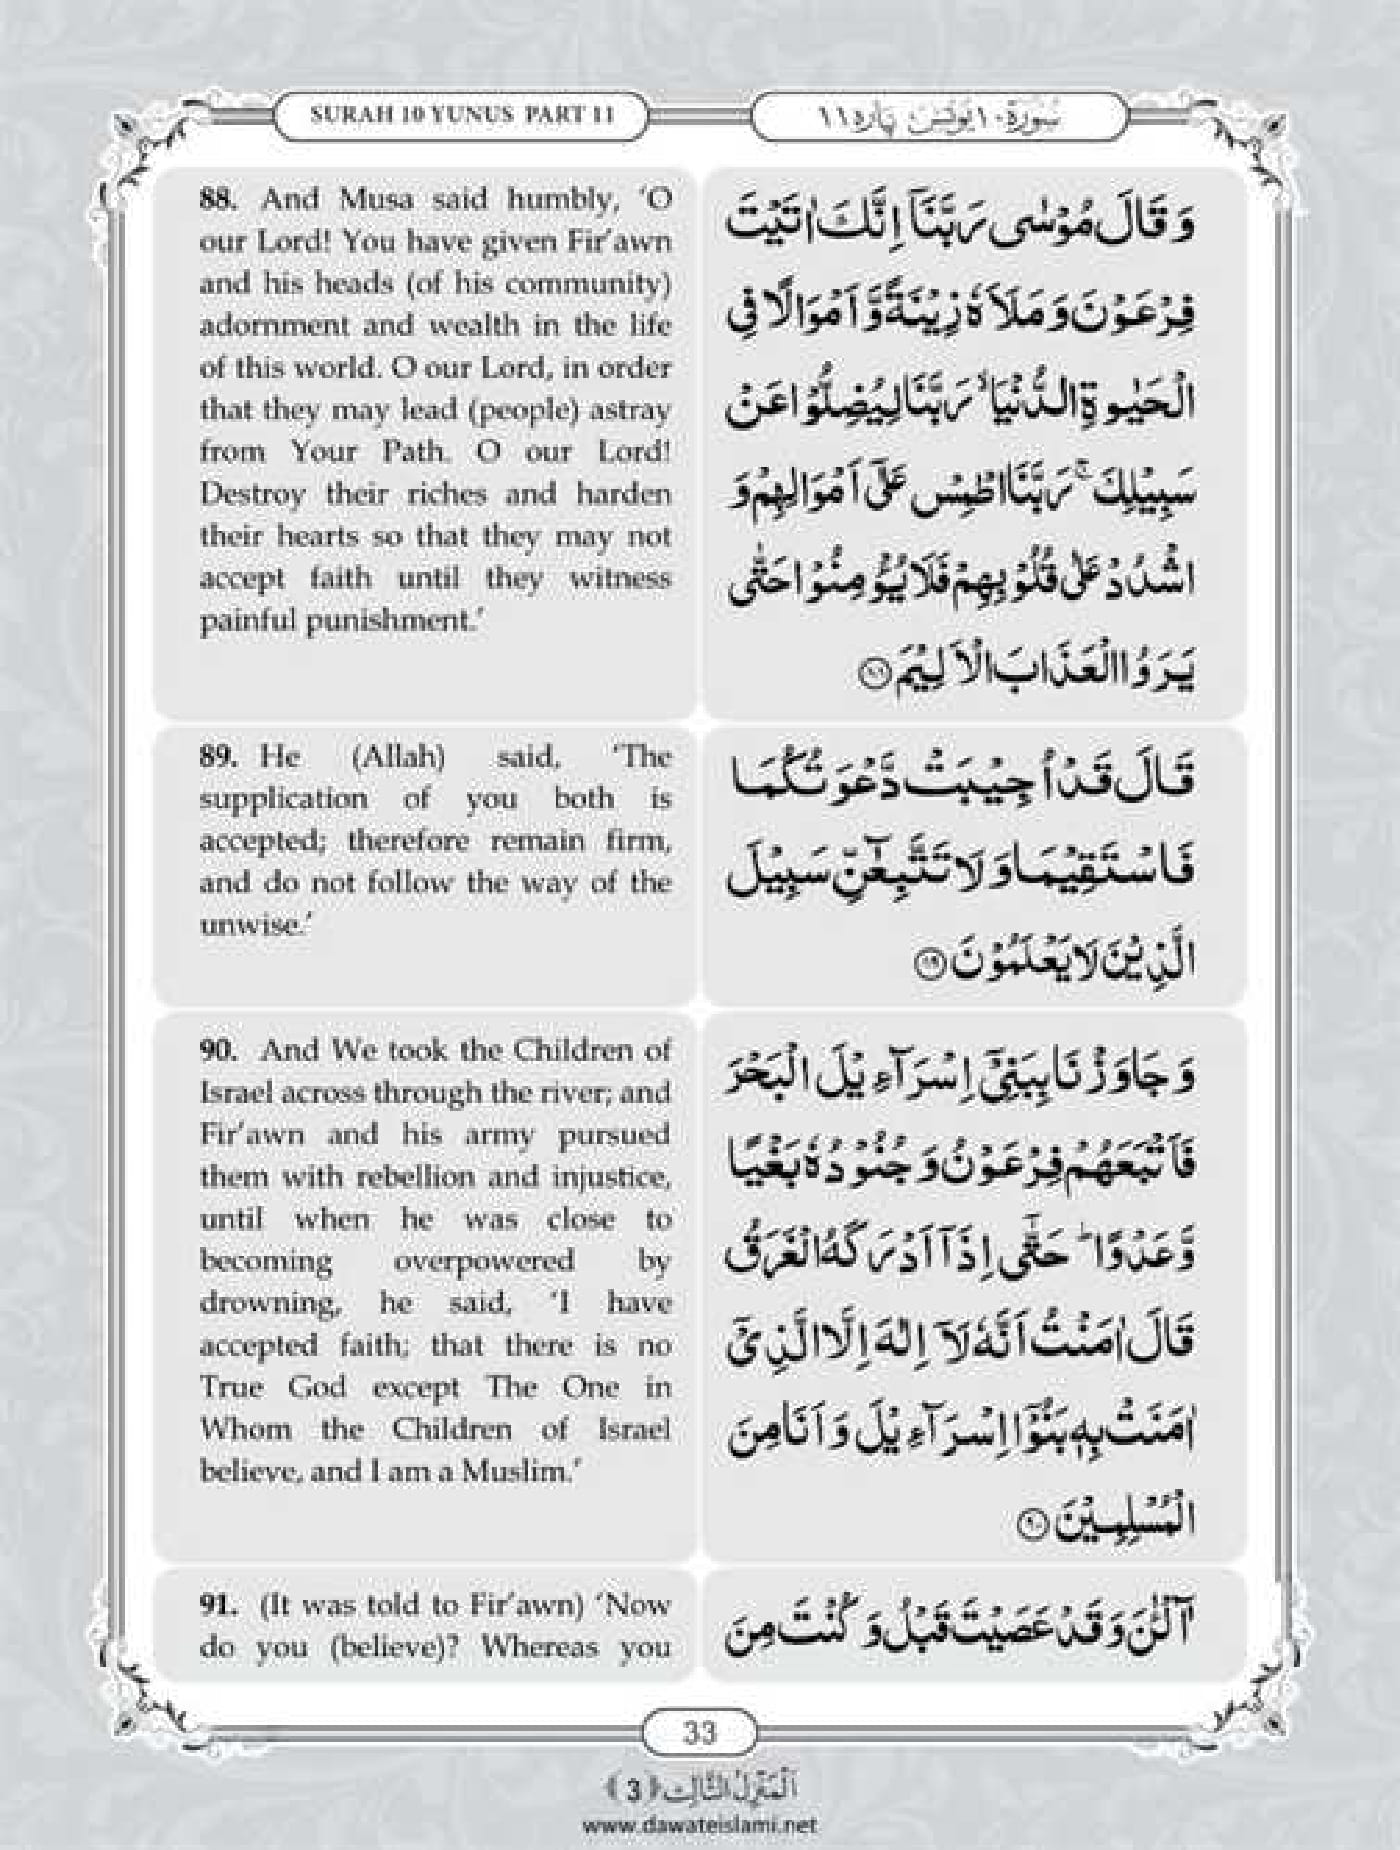 SURAH 10 YUNUS PART 11
سُوْرَة ١٠ يُوْنُس پاره ١١
88. And Musa said humbly, ‘O
our Lord! You have given Fir’awn
and his heads (of his community)
adornment and wealth in the life
of this world. O our Lord, in order
that they may lead (people) astray
from Your Path. O our Lord!
Destroy their riches and harden
their hearts so that they may not
accept faith until they witness
painful punishment.’
وَ قَالَ مُوْسٰى رَبَّنَاۤ اِنَّكَ اٰتَيْتَ
فِرْعَوْنَ وَ مَلَاَهٗ زِيْنَةً وَّ اَمْوَالًا فِي
الْحَيٰوةِ الدُّنْيَا ۙ رَبَّنَا لِيُضِلُّوْا عَنْ
سَبِيْلِكَ ۚ رَبَّنَا اطْمِسْ عَلٰۤى اَمْوَالِهِمْ وَ
اشْدُدْ عَلٰى قُلُوْبِهِمْ فَلَا يُؤْمِنُوْا حَتّٰى
يَرَوُا الْعَذَابَ الْاَلِيْمَ ﴿۸۸﴾
89. He (Allah) said, ‘The
supplication of you both is
accepted; therefore remain firm,
and do not follow the way of the
unwise.’
قَالَ قَدْ اُجِيْبَتْ دَّعْوَتُكُمَا
فَاسْتَقِيْمَا وَ لَا تَتَّبِعٰٓنِّ سَبِيْلَ
الَّذِيْنَ لَا يَعْلَمُوْنَ ﴿۸۹﴾
90. And We took the Children of
Israel across through the river; and
Fir’awn and his army pursued
them with rebellion and injustice,
until when he was close to
becoming overpowered by
drowning, he said, ‘I have
accepted faith; that there is no
True God except The One in
Whom the Children of Israel
believe, and I am a Muslim.’
وَ جَاوَزْنَا بِبَنِيْۤ اِسْرَآءِيْلَ الْبَحْرَ
فَاَتْبَعَهُمْ فِرْعَوْنُ وَ جُنُوْدُهٗ بَغْيًا
وَّ عَدْوًا ؕ حَتّٰۤى اِذَاۤ اَدْرَكَهُ الْغَرَقُ
قَالَ اٰمَنْتُ اَنَّهٗ لَاۤ اِلٰهَ اِلَّا الَّذِيْۤ
اٰمَنَتْ بِهٖ بَنُوْۤا اِسْرَآءِيْلَ وَ اَنَا مِنَ
الْمُسْلِمِيْنَ ﴿۹۰﴾
91. (It was told to Fir’awn) ‘Now
do you (believe)? Whereas you
آٰلْـٰٔنَ وَ قَدْ عَصَيْتَ قَبْلُ وَ كُنْتَ مِنَ
33
اَلْمَنْزِلُ الثَّالِث ﴿3﴾
www.dawateislami.net